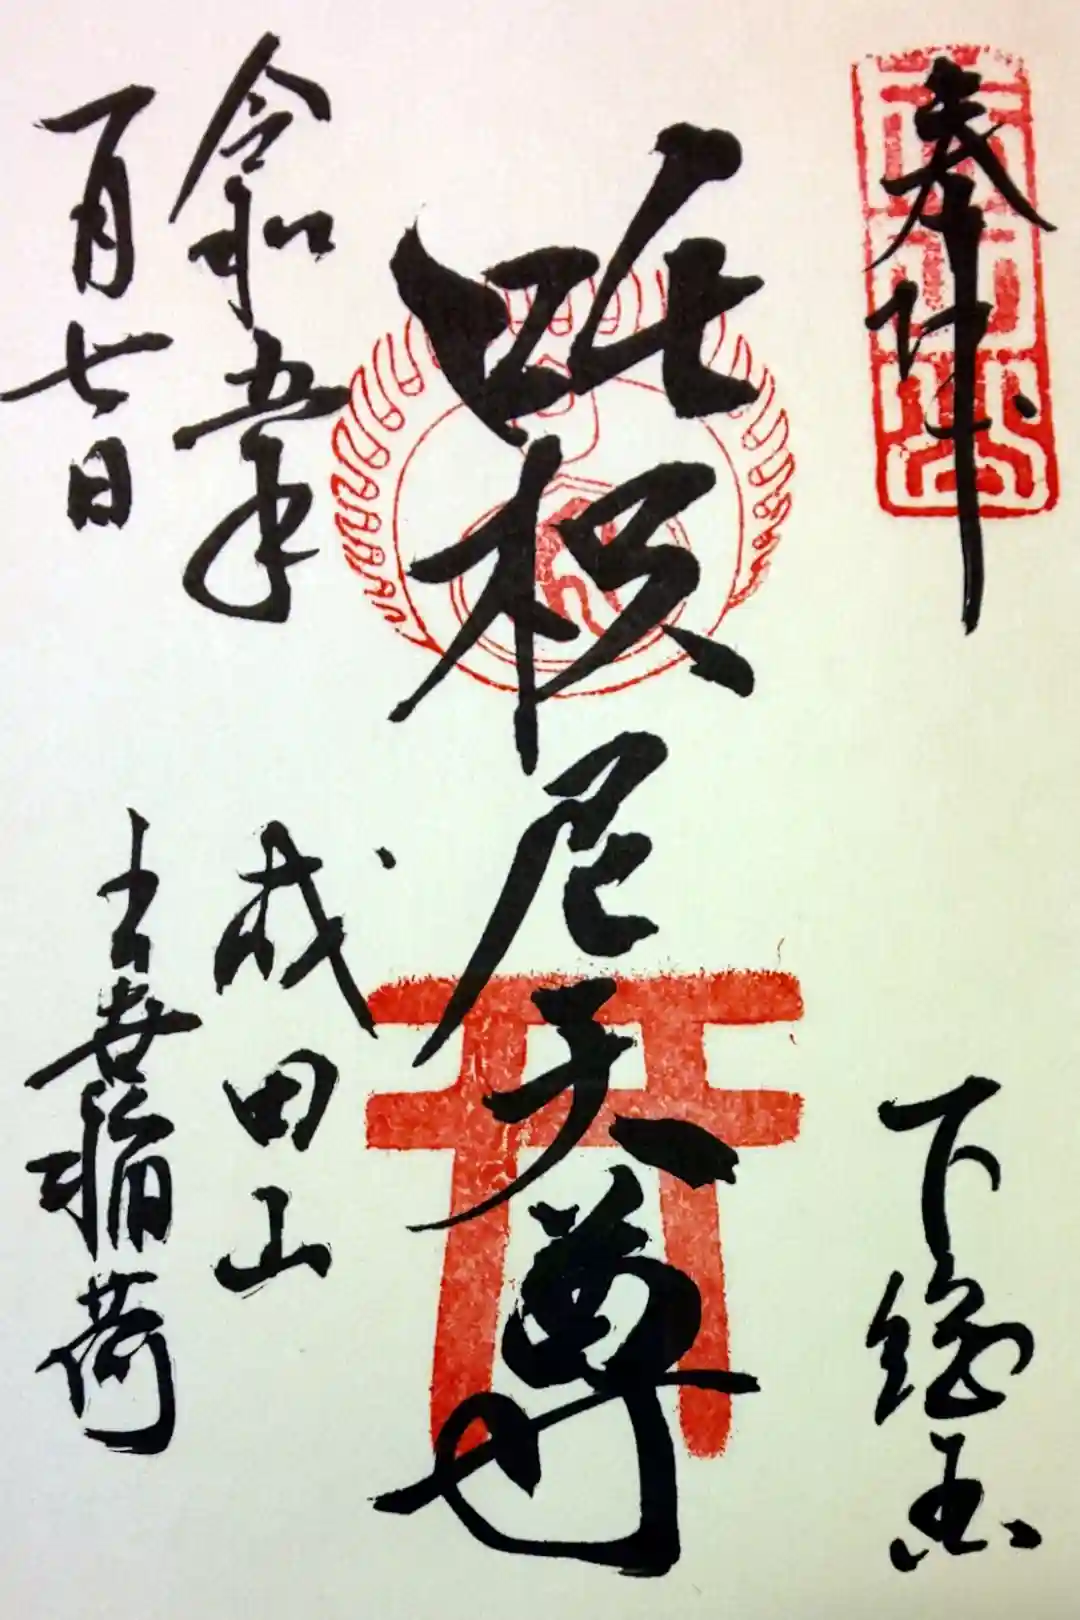 奉拝
下総国
吒枳尼天尊
令和五年
一月七日
成田山
出世稲荷